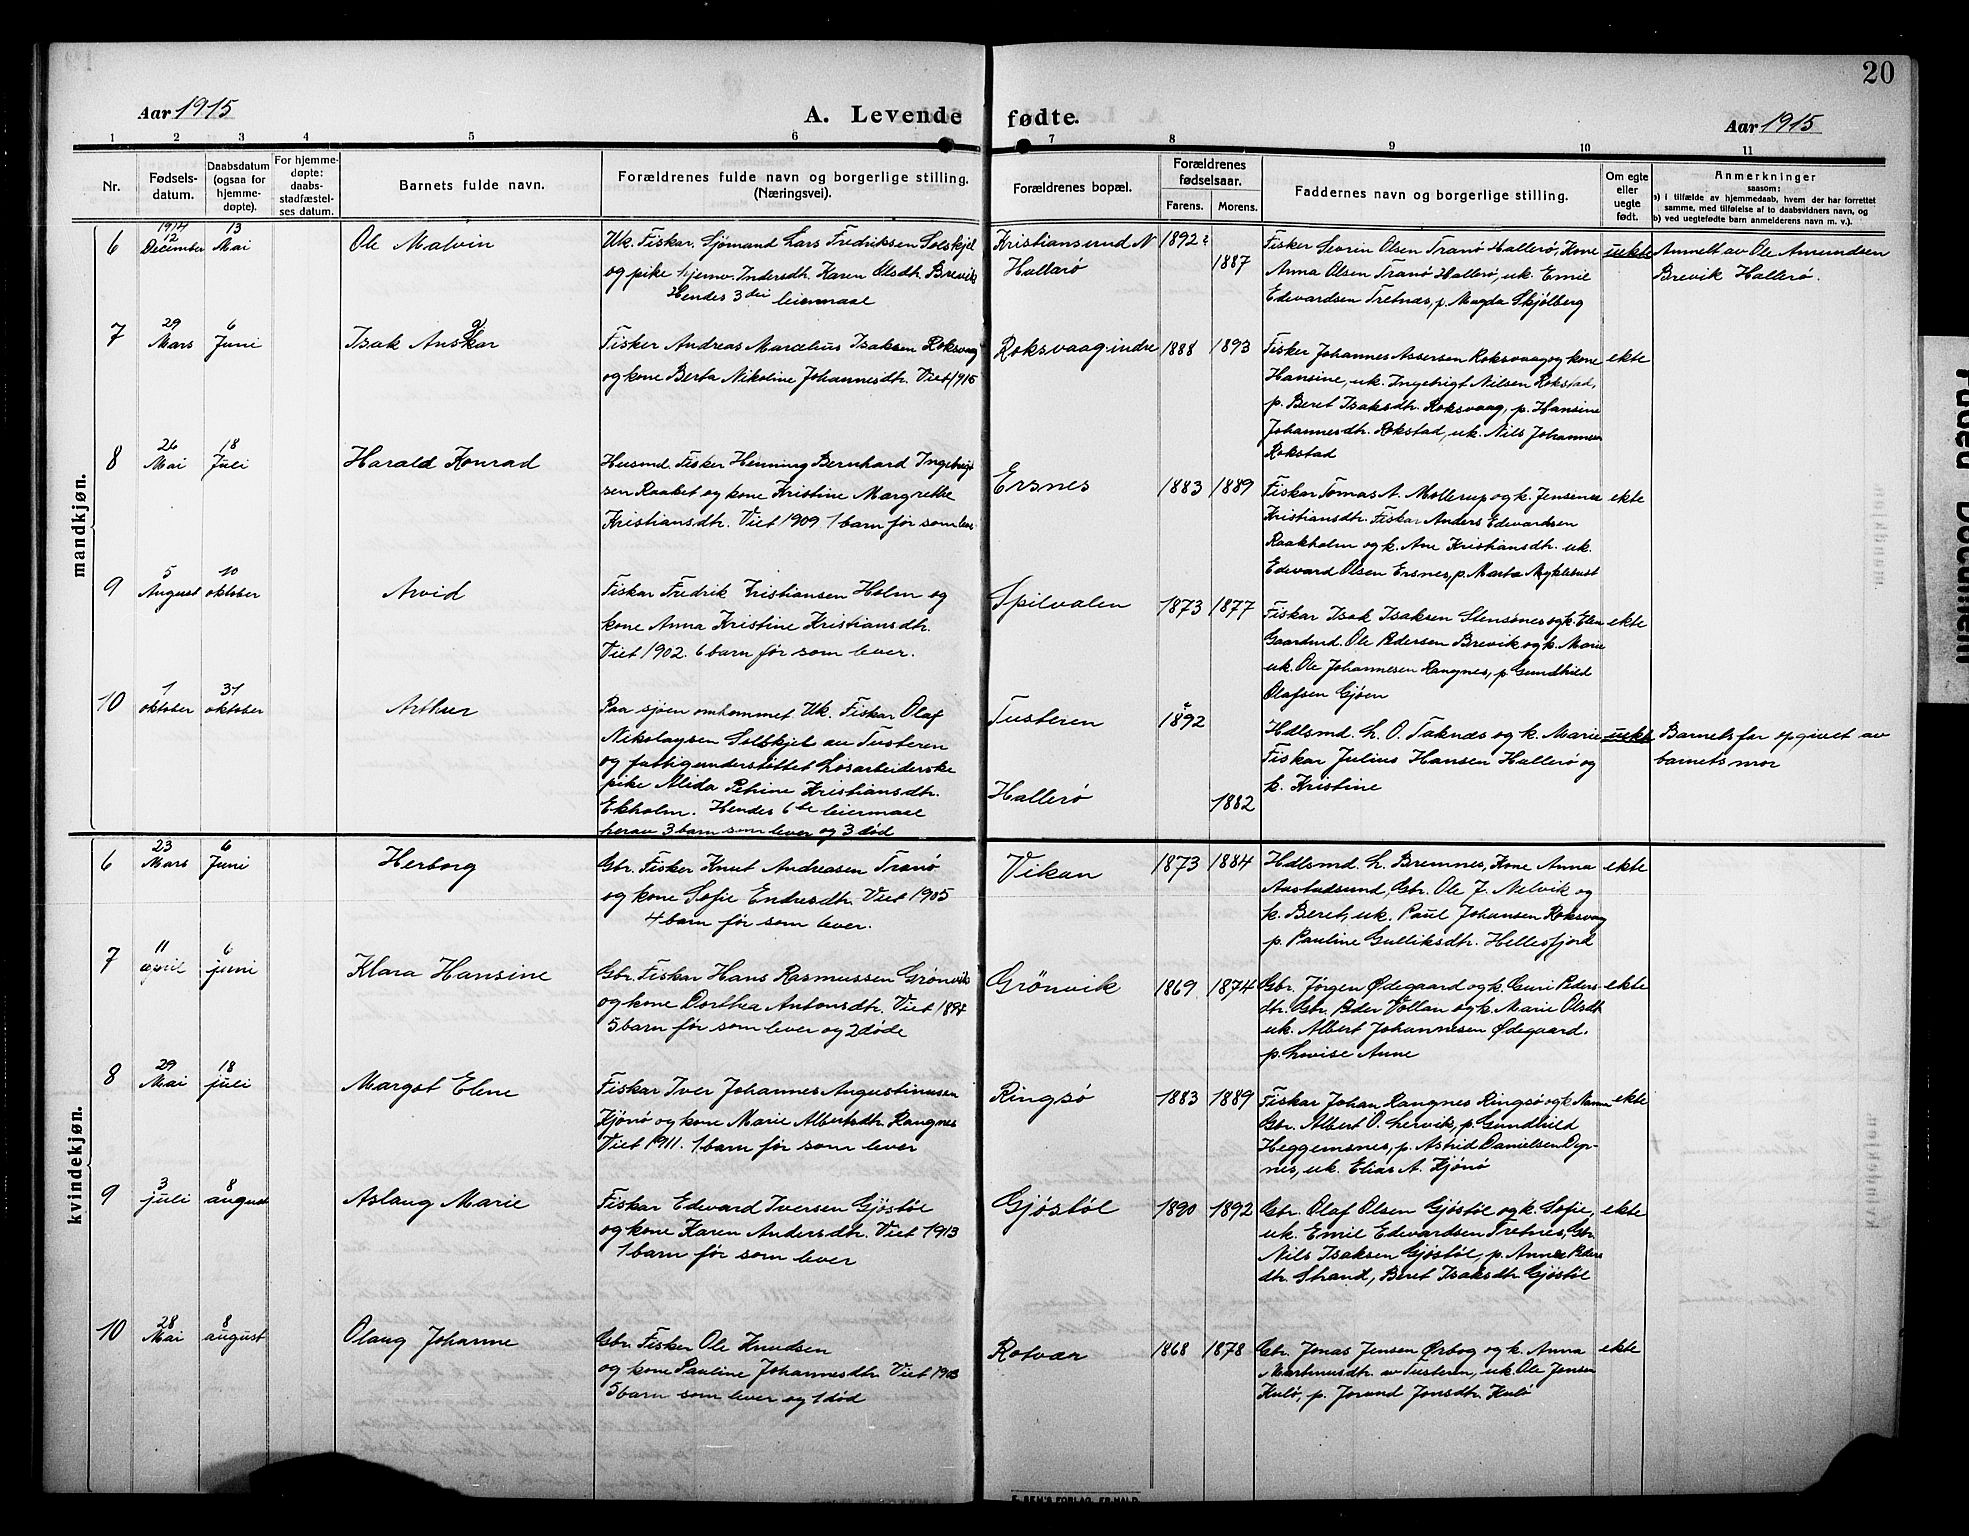 20
Aar 1915
A. Levende fødte.
Aar 1915
1 2 3 4 5 6 7 8 9 10 11
Nr.
Fødsels-
datum.
Daabsdatum
(ogsaa for
hjemme-
døpte).
For hjemme-
døpte:
daabs-
stadfæstel-
ses datum.
Barnets fulde navn.
Forældrenes fulde navn og borgerlige stilling.
(Næringsvei).
Forældrenes bopæl.
Forældrenes
fødselsaar.
Farens. Morens.
Faddernes navn og borgerlige stilling.
Om egte
eller
uegte
født.
Anmerkninger
saasom:
a) i tilfælde av hjemmedaab, hvem der har forrettet
samme, med tilføielse af to daabsvidners navn, og
b) ved uegtefødte barn anmelderens navn m. v.).
mandkjøn.
6
1914
12
December
13
Mai
Ole Malvin
Uk. Fisker. Sjømand Lars Fredriksen Solskjel
og pike hjemv. Indersdh. Karen Olsdh. Brevik
Hendes 3die leiermaal
Kristiansund N
Hallerø
1892
1887
Fisker Sevrin Olsen Tranø Hallerø, Kone
Anna Olsen Tranø Hallerø, uk. Emil
Edevardsen Tretnæs, p. Magda Skjølberg
uekte
Anmelt av Ole Amundsen
Brevik Hallerø.
7
29
Mars
6
Juni
Isak Anskar
Fisker Andreas Marelius Isaksen Roksvaag
og kone Berta Nikoline Johannesdh. Viet 1915
Roksvaag indre
1888 1893
Fisker Johannes Assersen Roksvaag og kone
Hansine, uk. Ingebrigt Nilsen Rokstad,
p. Beret Isaksdh. Roksvaag, p. Hansine
Johannesdh. Rokstad, uk. Nils Johannsen
Rokstad
ekte
8
26
Mai
18
Juli
Harald Konrad
Husmd. Fisker Henning Bernhard Ingebrigt
sen Raaket og kone Kristine Margrethe
Kristiansdh. Viet 1909 1 barn før som lever
Ersnes
1883 1889
Fisker Tomas A. Mollerup og k. Jensine
Kristiansdh. Fisker Anders Edevardsen
Raakholm og k. Ane Kristiansdh. uk.
Edevard Olsen Ersnes, p. Marta Myklebust
ekte
9
5
August
10
oktober
Arvid
Fisker Fredrik Kristiansen Holm og
kone Anna Kristine Kristiansdh.
Viet 1902. 6 barn før som lever.
Spilvalen
1873 1877
Fisker Isak Isaksen Stensønes og k. Elen
Gaardmd. Ole Pedersen Brevik og k. Marie
uk. Ole Johannesen Rangnes, p. Gundhild
Olafsen Gjøen
ekte
10
1
oktober
31
oktober
Arthur
Paa sjøen omkommet Uk. Fisker Olaf
Nikolaysen Solskjel av Tusteren
og fattigunderstøttet Løsarbeiderske
pike Alida Petrine Kristiansdh.
Ekholm. Hendes 6te leiermaal
herav 3 barn som lever og 3 død
Tusteren
Hallerø
1892
1882
Hdlsmd. L. O. Taknæs og k. Marie
Fisker Julius Hansen Hallerø og
k. Kristine
uekte
Barnets far opgivet av
barnets mor
kvindekjøn.
6
23
Mars
6
Juni
Herborg
Gbr. Fisker Knut Andreasen Tranø
og kone Sofie Endresdh. Viet 1905
4 barn før som lever.
Vikan
1873 1884
Hdlsmd. L. Bremnes, Kone Anna
Aastadsund, Gbr. Ole J. Nelvik og
k. Beret, uk. Paul Johansen Roksvaag
p. Pauline Gulliksdh. Hellesfjord
ekte
7
11
april
6
juni
Klara Hansine
Gbr. Fisker Hans Rasmussen Grønvik
og kone Dorthea Antonsdh. Viet 1894
5 barn før som lever og 2 døde
Grønvik
1869 1874
Gbr. Jørgen Ødegaard og k. Guri Peders-
dh. Gbr. Peder Vollan og k. Marie Olsdh
uk. Albert Johannesen Ødegaard.
p. Lovise Anne
ekte
8
29
Mai
18
juli
Margot Elene
Fisker Iver Johannes Augustinusen
Kjønø og kone Marie Albertsdh. Rangnes
Viet 1911. 1 barn før som lever
Ringsø
1883 1889
Fisker Johan Rangnes Ringsø og k.
Gbr. Albert O. Lervik, p. Gundhild
Heggemsnes, p. Astrid Danielsen Dyr-
nes, uk. Elias A. Kjønø
ekte
9
3
juli
8
august
Aslaug Marie
Fisker Edevard Iversen Gjøstøl
og kone Karen Andersdh. Viet 1913
1 barn før som lever
Gjøstøl
1890 1892
Gbr. Olaf Olsen Gjøstøl og k. Sofie,
uk. Emil Edevardsen Tretnes, Gbr.
Nils Isaksen Gjøstøl, p. Anne Peders
dh. Strand, Beret Isaksdh Gjøstøl
ekte
10
28
Mai
8
august
Olaug Johanne
Gbr. Fisker Ole Knudsen
og kone Pauline Johannesdh. Viet 1903
5 barn som lever og 1 død
Rotvær
1868 1878
Gbr. Jonas Jensen Ørbog og k. Anna
Martinusdh. av Tusteren, uk. Ole Jensen
Kulø, p. Jorund Jonsdh. Kulø
ekte